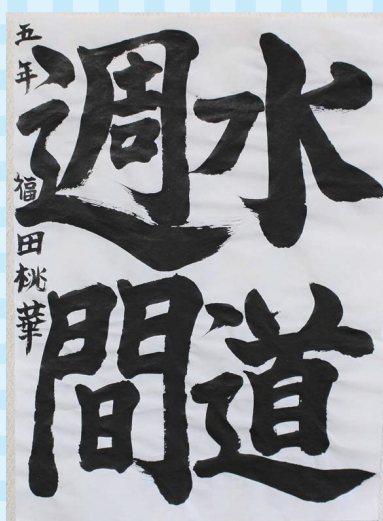 水道
週間
五年 福田桃華